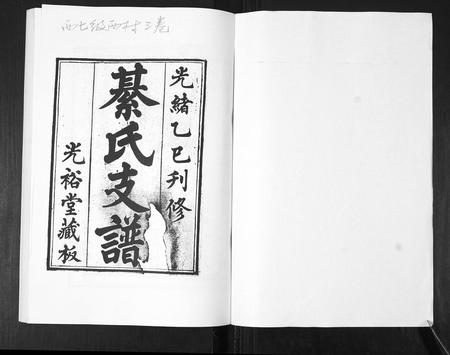 西七级西村三卷
光緒乙巳刋修
綦氏支譜
光裕堂藏板